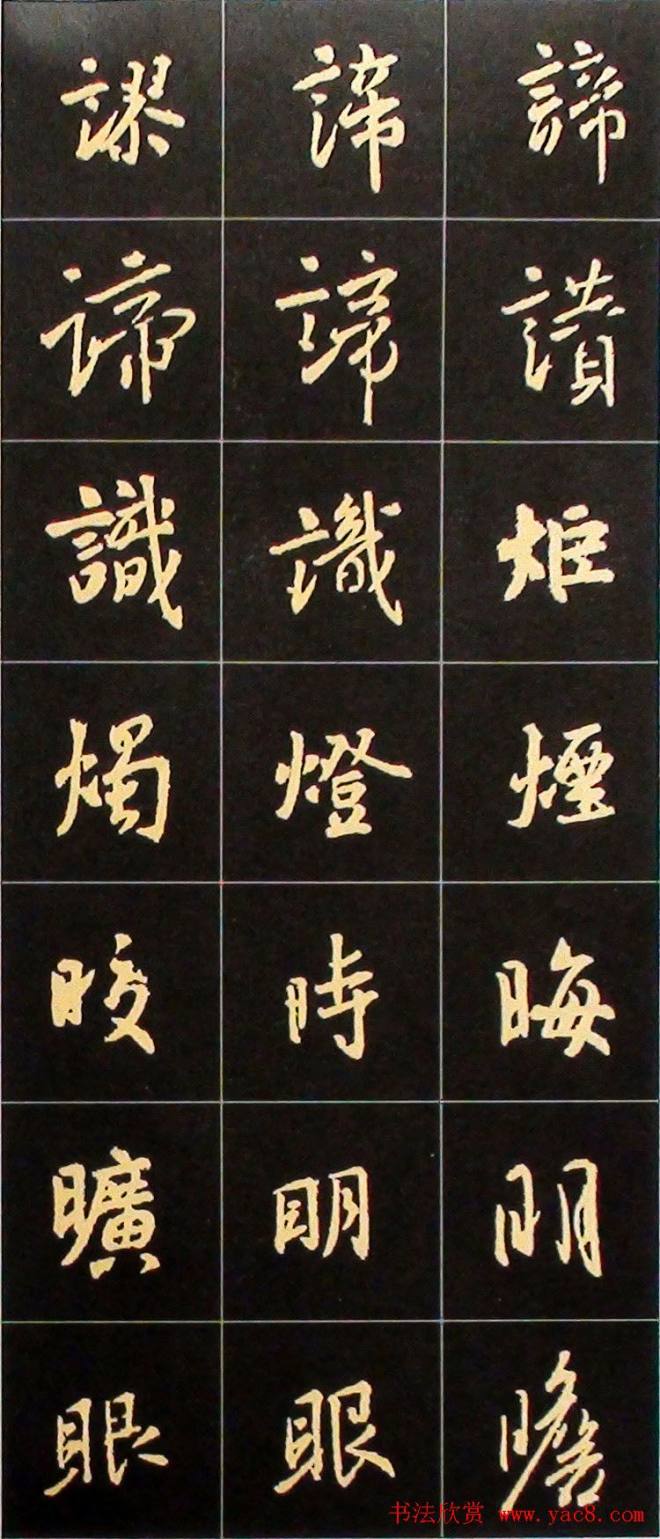 謬諦諦
諦諦讃
識識炬
燭燈煙
晈時晦
曠明明
眼眼瞻
书法欣赏 www.yac8.com